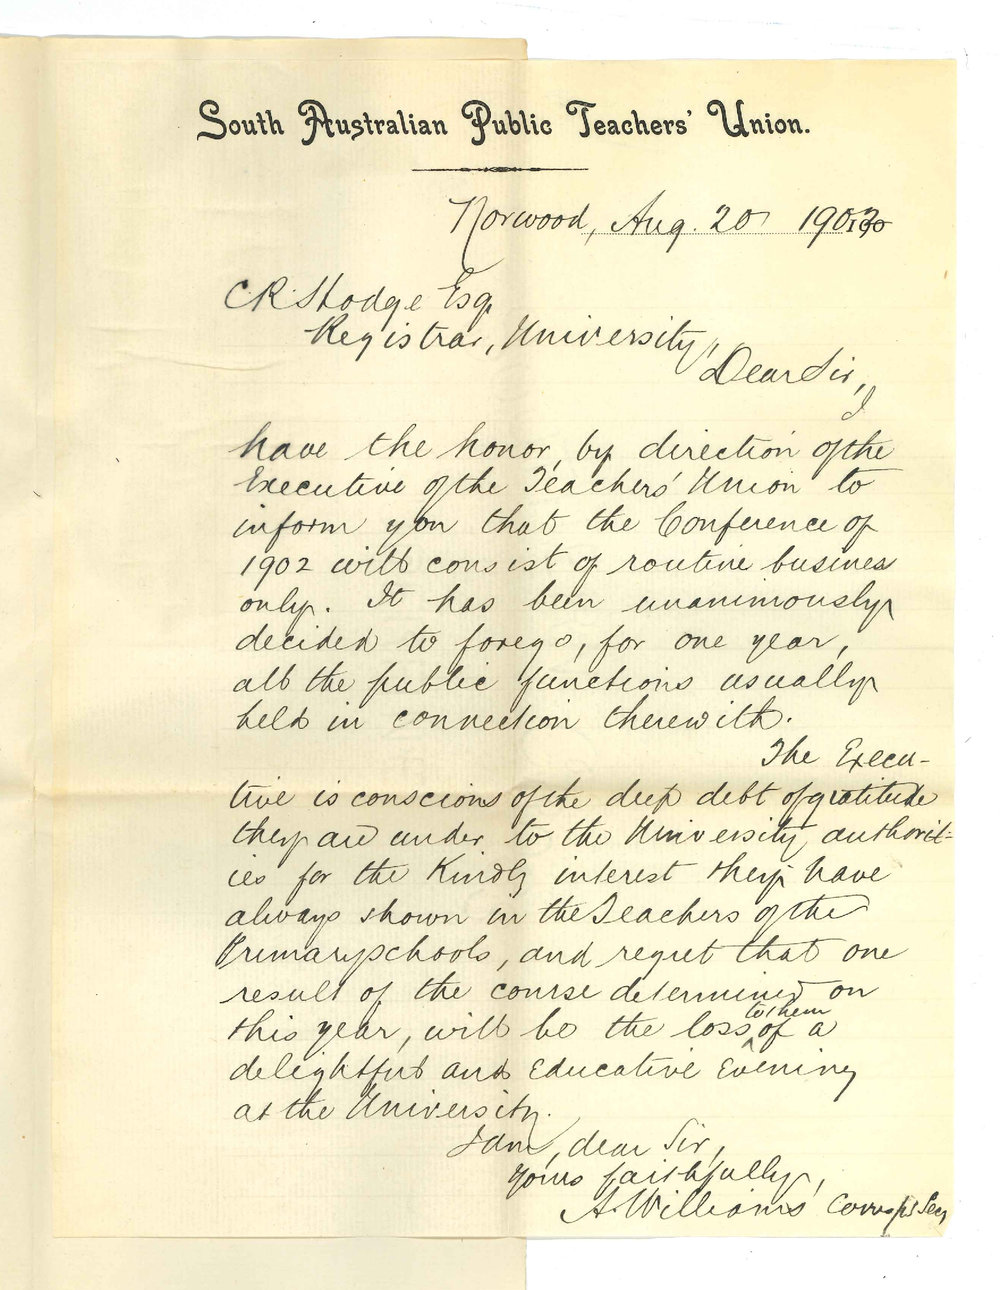 South Australian Public Teachers' Union.
Norwood, Aug. 20 1902
C. R. Hodge Esq
Registrar, University,
Dear Sir,
I
have the honor, by direction of the
Executive of the Teachers' Union to
inform you that the Conference of
1902 will consist of routine business
only. It has been unanimously
decided to forego, for one year,
all the public functions usually
held in connection therewith.
The Execu-
tive is conscious of the deep debt of gratitude
they are under to the University authorit-
ies for the kindly interest they have
always shown in the Teachers of the
Primary schools, and regret that one
result of the course determined on
this year, will be the loss to them of a
delightful and educative evening
at the University.
I am, dear Sir,
Yours faithfully,
A. Williams Corresp Secy